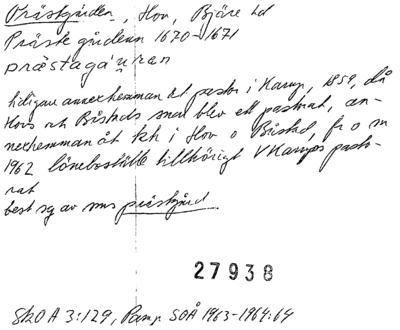 Prästgården, Hov, Bjäre hd
Präste gårdenn 1670-1671
præstagáu̯ran
tidigare annexhemman åt pastor i Karup, 1859, då
Hovs och Båstads snar blev ett pastorat, an-
nexhemman åt kh i Hov o Båstad, fr o m
1962 löneboställe tillhörigt V Karups pasto-
rat
best sg av sms prästgård
27938
SkO A 3:129, Pamp SOÅ 1963-1964:64